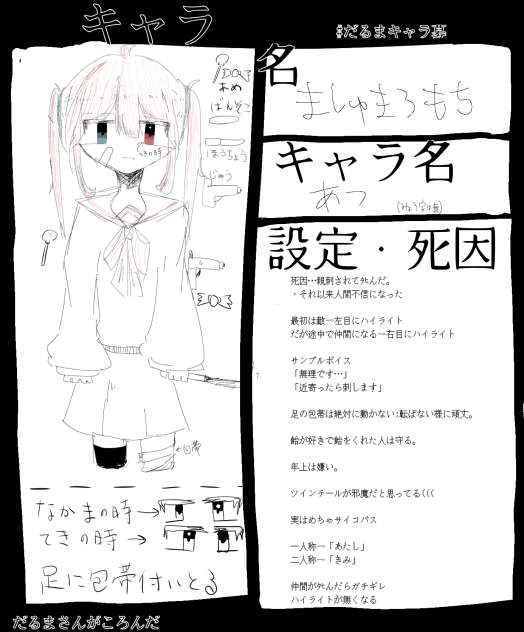 キャラ
#だるまキャラ募
名
ましゅまろもち
キャラ名
あつ
(みょう字は無)
設定・死因
死因…親刺されてタヒんだ。
・それ以来人間不信になった
最初は敵一左目にハイライト
だが途中で仲間になる一右目にハイライト
サンプルボイス
「無理です…」
「近寄ったら刺します」
足の包帯は絶対に動かない:転ばない様に頑丈。
飴が好きで飴をくれた人は守る。
年上は嫌い。
ツインテールが邪魔だと思ってる(((
実はめちゃサイコパス
一人称一「あたし」
二人称一「きみ」
仲間がタヒんだらガチギレ
ハイライトが無くなる
あめ
ばんそこ
ほうちょう
じゅう
てきの時
←包帯
なかまの時→
てきの時→
足に包帯付いとる
だるまさんがころんだ